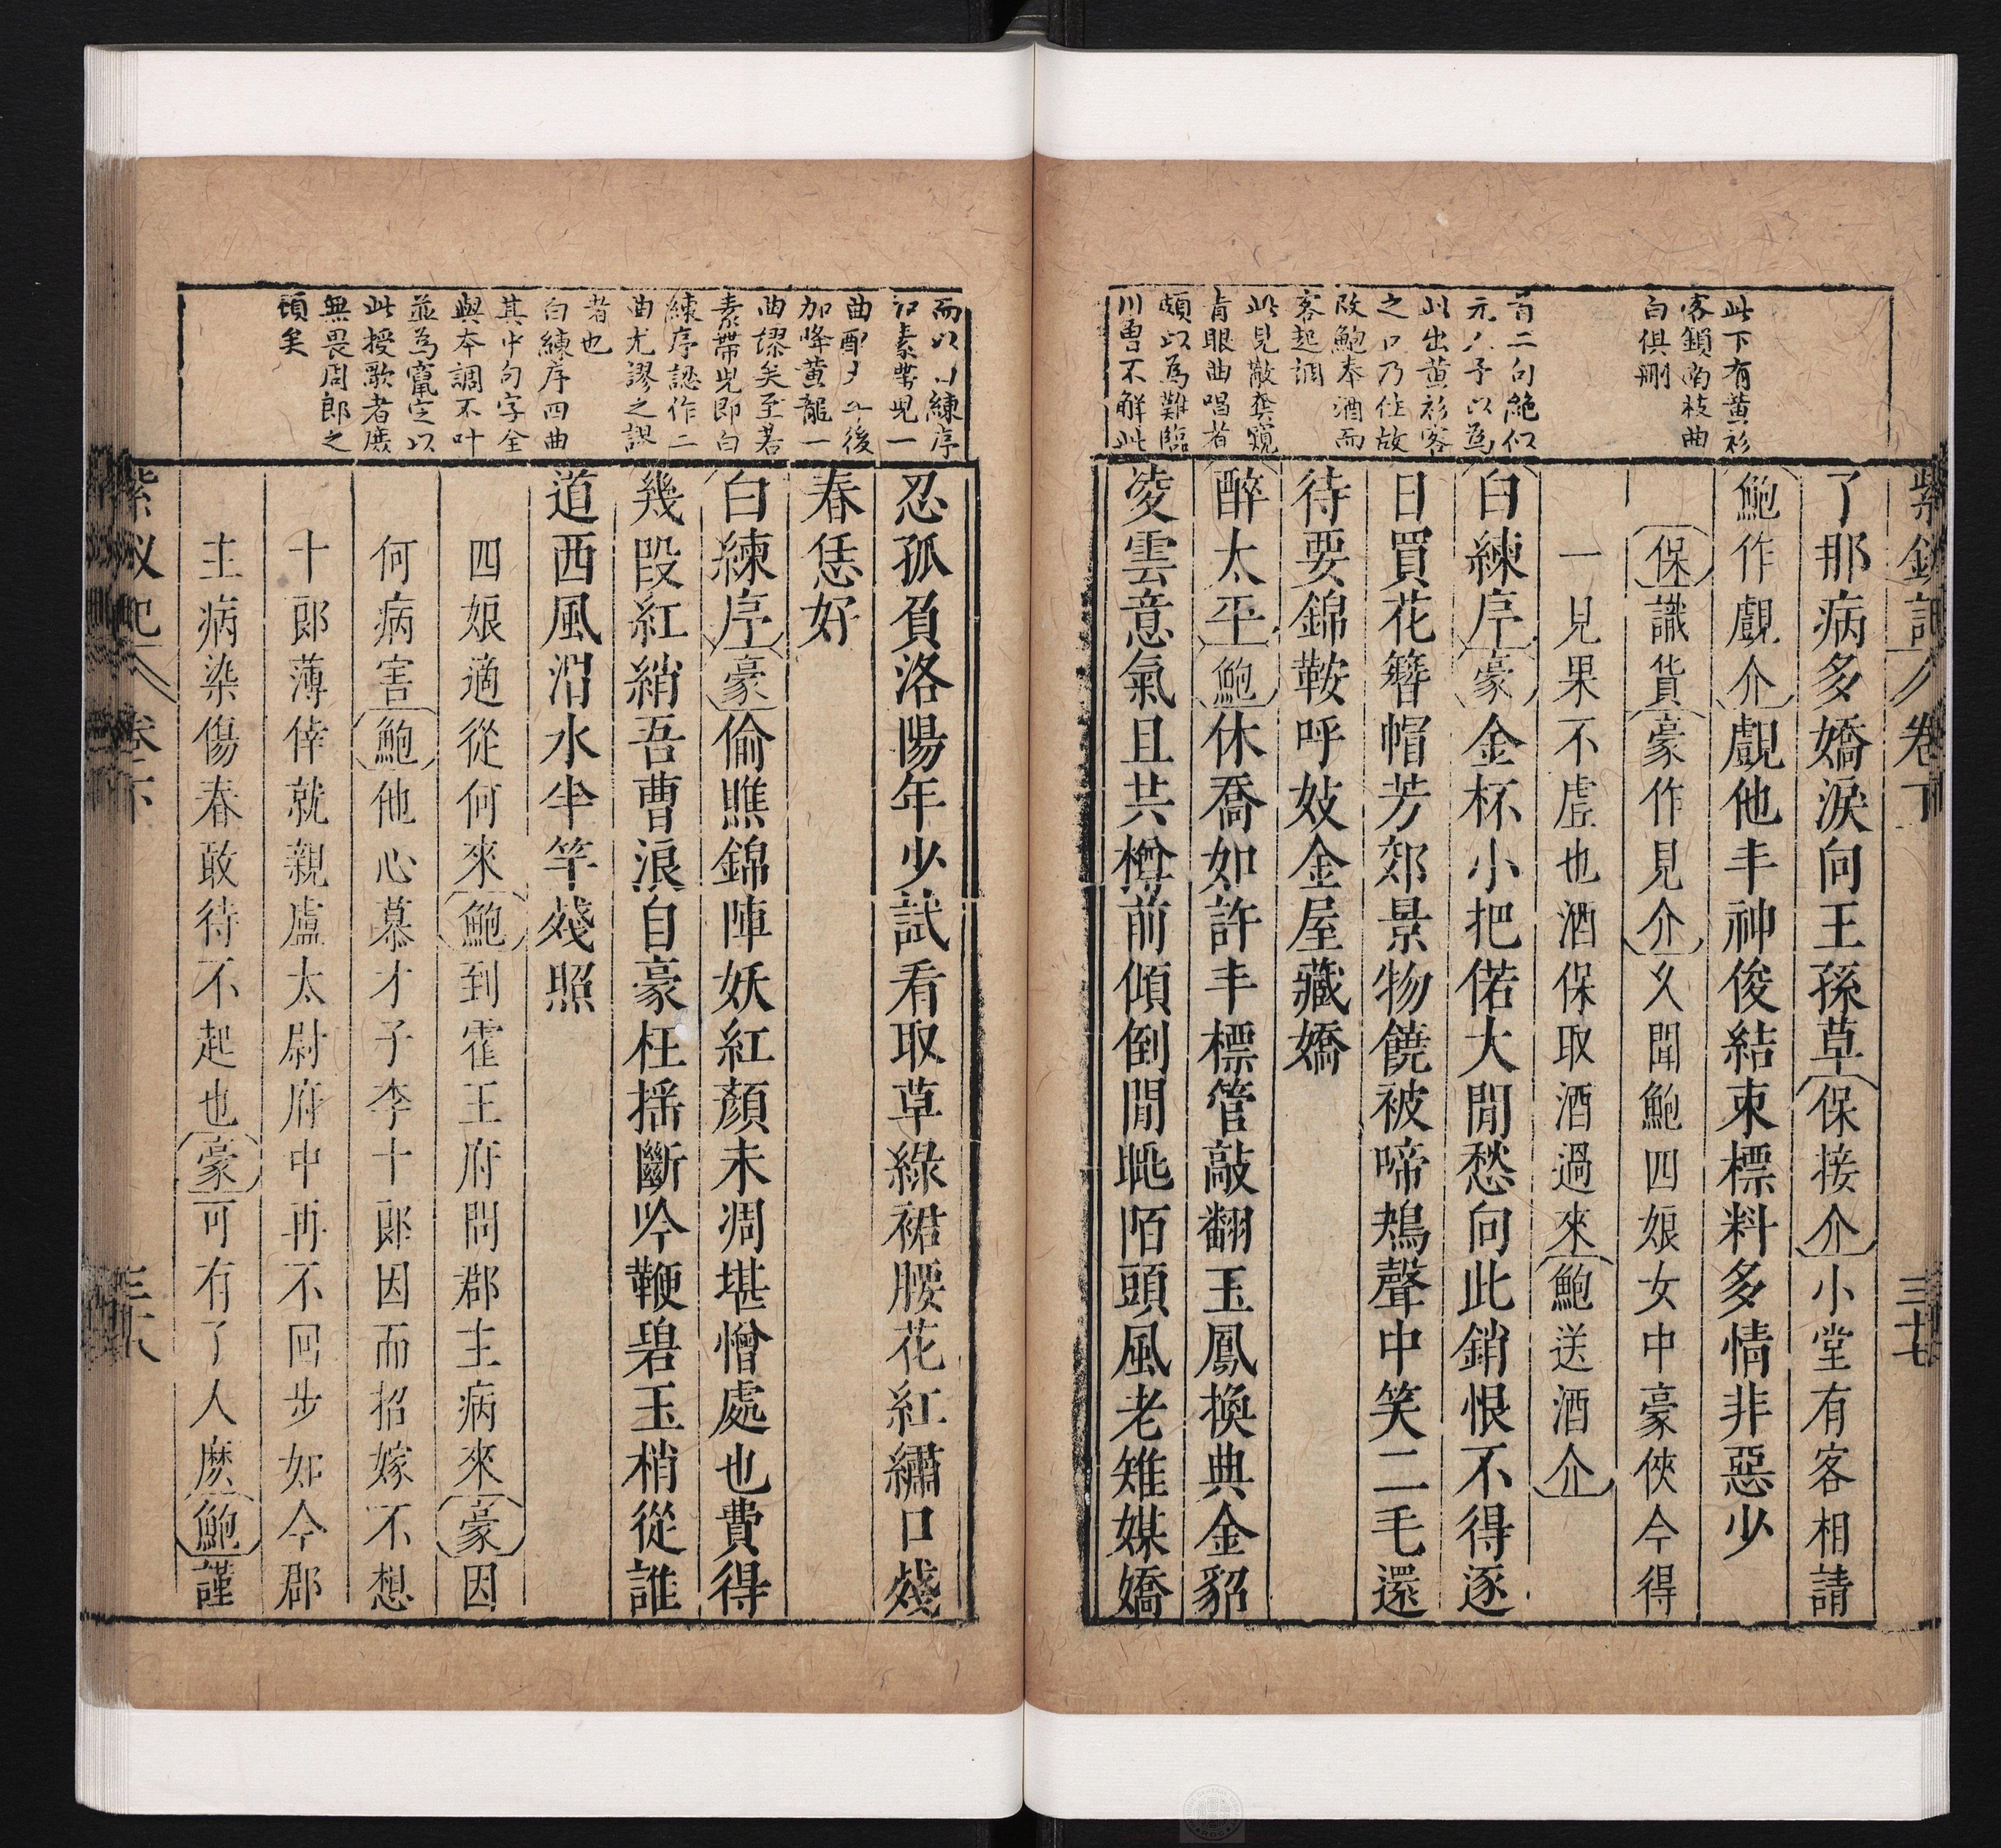 紫釵記 卷下 三十七
此下有黃衫
客鎖南枝曲
白俱刪
首二句絶似
元人予以爲
此出黃衫客
之口乃佳故
改鮑奉酒而
客起調
此見散套窺
青眼曲唱者
頗以爲難臨
川曾不解此
了那病多嬌淚向王孫草保接介小堂有客相請
鮑作覰介覰他丰神俊結束標料多情非惡少
保識貨豪作見介久聞鮑四娘女中豪俠今得
一見果不虛也酒保取酒過來鮑送酒介
白練序豪金杯小把偌大閒愁向此銷恨不得逐
日買花簪帽芳郊景物饒被啼鴂聲中笑二毛還
待要錦鞍呼妓金屋藏嬌
醉太平鮑休喬如許丰標管敲翻玉鳳換典金貂
凌雲意氣且共樽前傾倒閒眺陌頭風老雉媒嬌
而以白練序
素帶兒一
曲配
後
加降黃龍一
曲謬矣至若
素帶兒即白
練序認作二
曲尤謬之謬
者也
白練序四曲
其中句字全
與本調不叶
並爲竄定以
此授歌者庶
無畏周郎之
頃矣
忍孤負洛陽年少試看取草綠裙腰花紅繡口殘
春恁好
白練序豪偷瞧錦陣妖紅顏未凋堪憎處也費得
幾段紅綃吾曹浪自豪枉搖斷吟鞭碧玉梢從誰
道西風渭水半竿殘照
四娘適從何來鮑到霍王府問郡主病來豪因
何病害鮑他心慕才子李十郎因而招嫁不想
十郎薄倖就親盧太尉府中再不回步如今郡
主病染傷春敢待不起也豪可有了人麽鮑謹
紫釵記 卷下